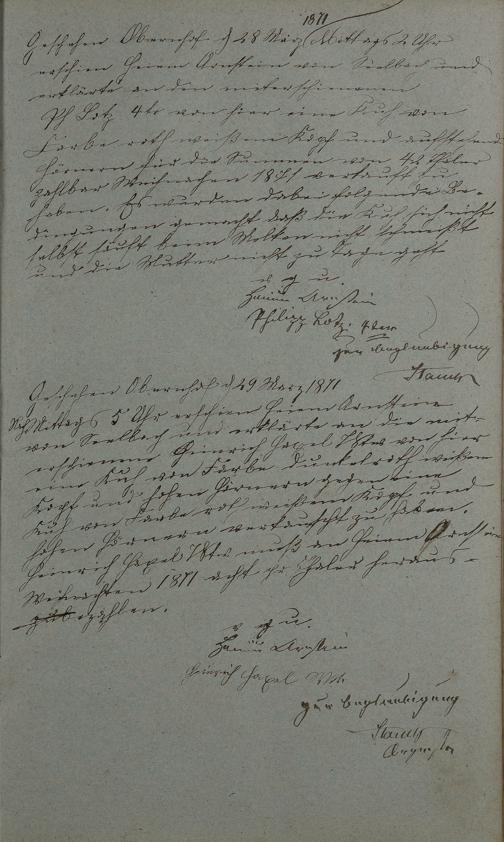 1871
Geschehen Obernhof d 28 März Mittags 2 Uhr
erschien Heium Arnstein von Seelbach und
erklärte an den miterschienenen
Ph Lotz 4te von hier eine Kuh von
Farbe roth weißem Kopf und aufstehend
Hörnern für die Summen von 48 Thaler
zahlbar Weihnachen 1871 verkauft zu
haben. Es wurden dabei folgende Be-
dingungen gemacht daß die Kuh sich nicht
selbst säuft beim Melken nicht schmeißt
und die Mutter nicht zu Tage geht
v g u.
Arnstein
Philipp Lotz. 4ter
zur Beglaubigung
Geschehen Obernhof d 29 März 1871
Mittags 5 Uhr erschien Heium Arnstein
von Seelbach und erklärte an die mit-
erschienen Heinrich von hier
eine Kuh von Farbe dunkelroth weißem
Kopf und hohen Hörnern gegen eine
Kuh von Farbe rot weißem Kopf und
hohen Hörnern vertauscht zu haben.
Heinrich muß an Arnstein
Weihnachten 1871 acht pr Thaler heraus-
zahlen.
v g u.
Arnstein
Heinrich
zur Beglaubigung